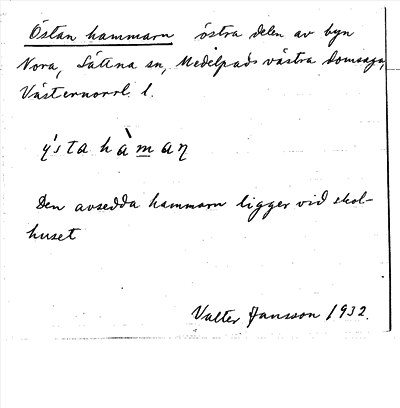 Östan hammarn östra delen av byn
Nora, Sättna sn, Medelpads västra domsaga,
Västernorrl. l.
ýsta hàmaη
Den avsedda hammarn ligger vid skol-
huset
Valter Jansson 1932.